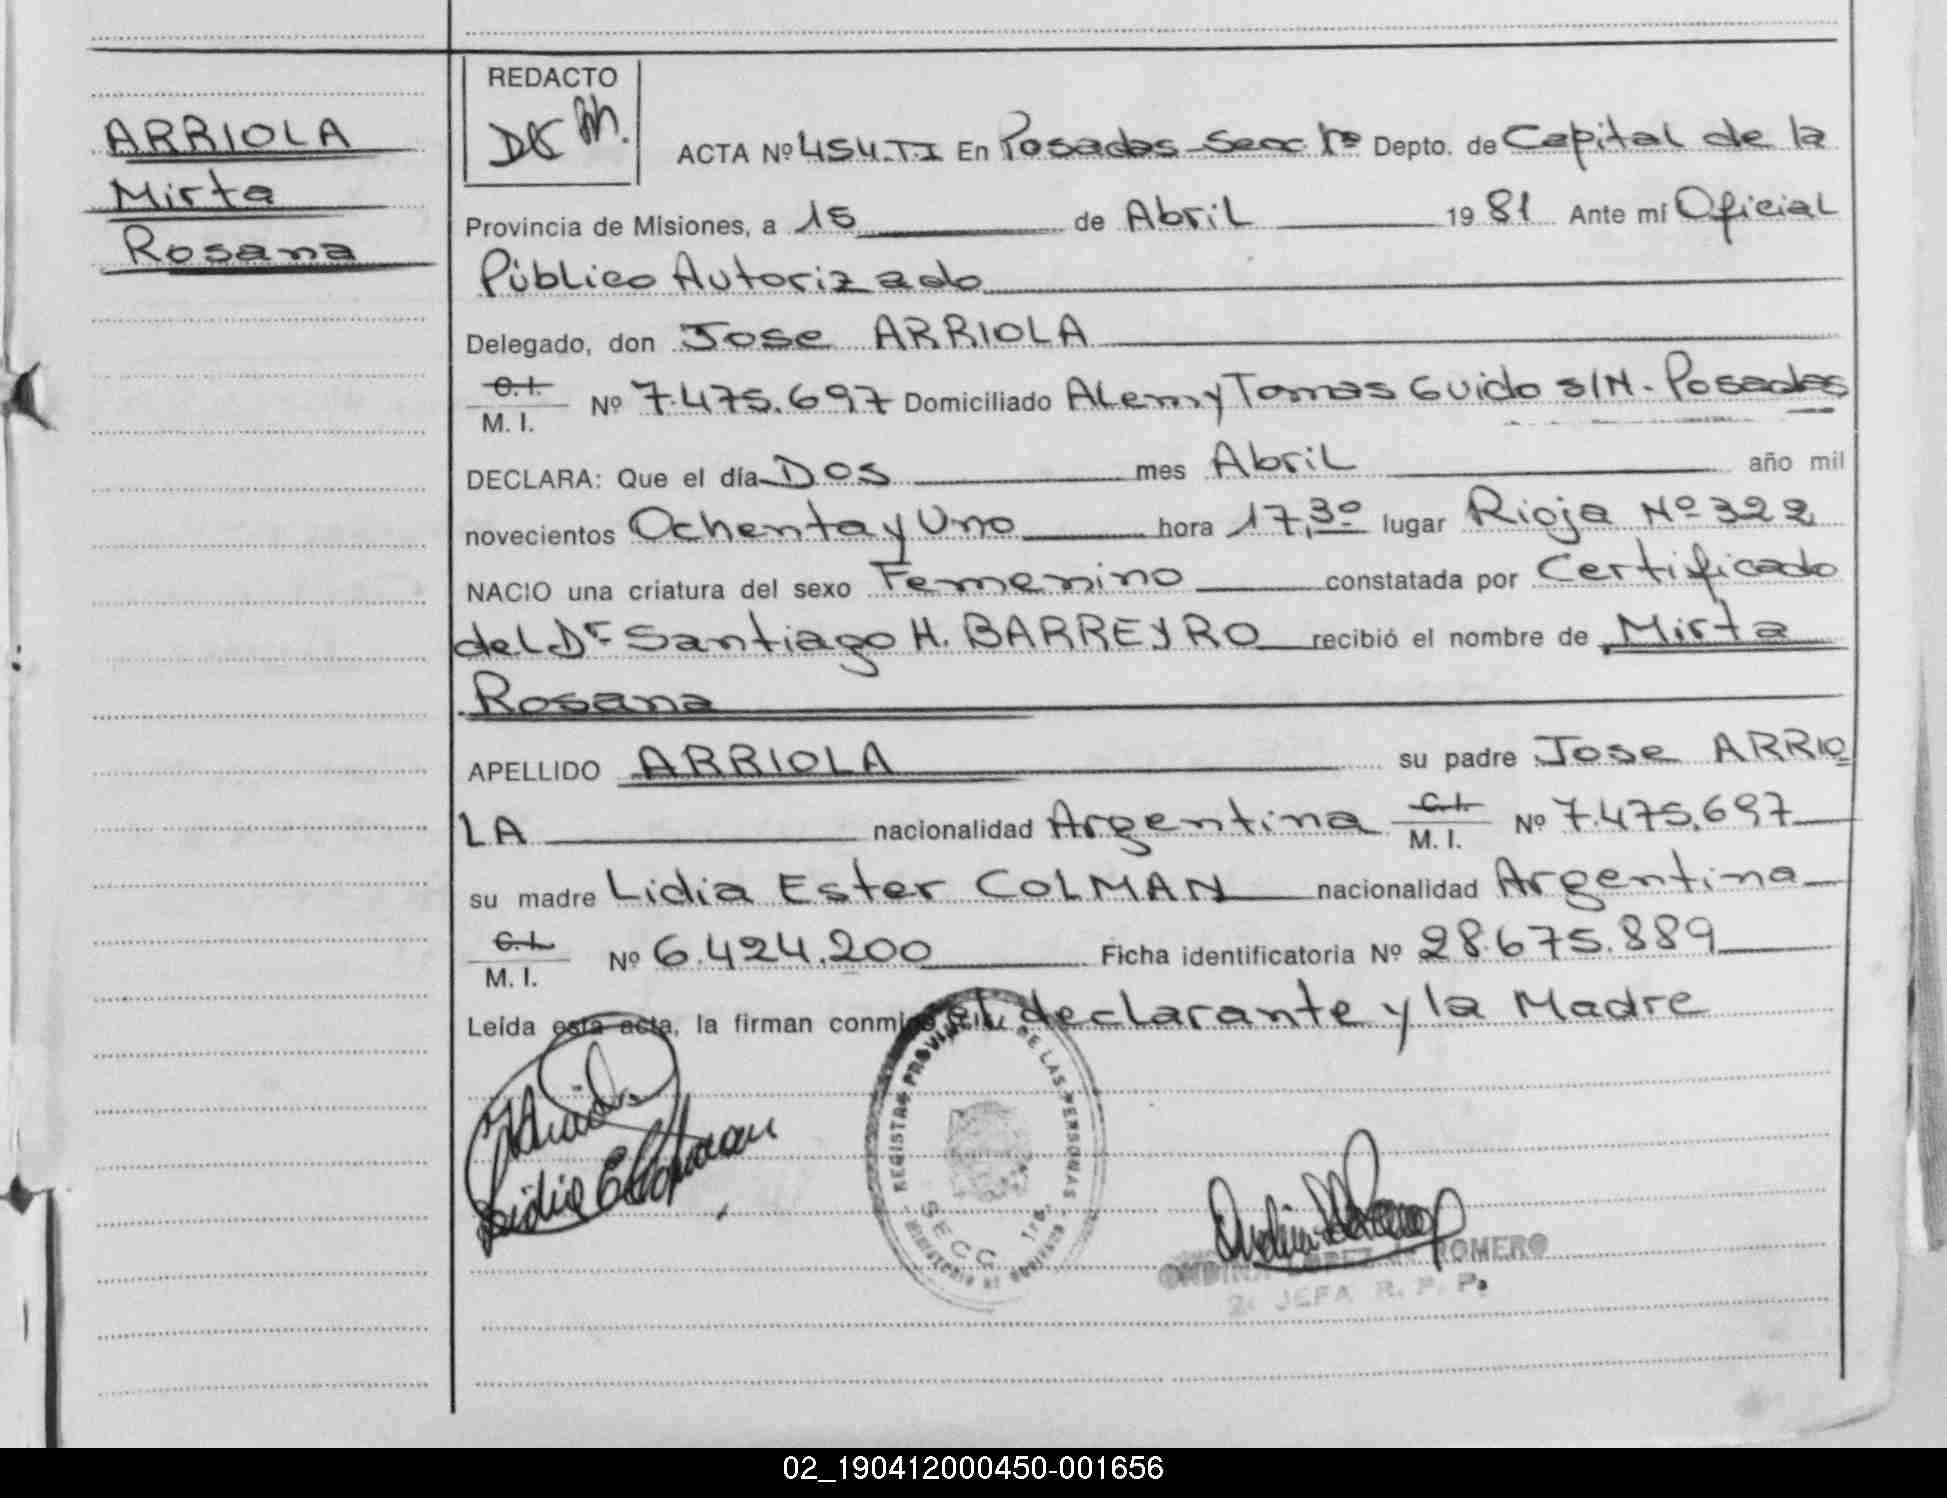 ARRIOLA
Mirta
Rosana
REDACTO
ACTA Nº 454.TI En Posadas-Secc 1ª Depto. de Capital de la
Provincia de Misiones, a 15 de Abril 1981 Ante mí Oficial
Público Autorizado
Delegado, don Jose ARRIOLA
C.I. M. I. Nº 7.475.697 Domiciliado Alem y Tomas Guido s/N - Posadas
DECLARA: Que el día Dos mes Abril año mil
novecientos Ochenta y Uno hora 17,30 lugar Rioja Nº 322
NACIO una criatura del sexo Femenino constatada por Certificado
del Dr Santiago H. BARREYRO recibió el nombre de Mirta
Rosana
APELLIDO ARRIOLA su padre Jose ARRIO
LA nacionalidad Argentina C.I. M. I. Nº 7.475.697
su madre Lidia Ester COLMAN nacionalidad Argentina
C.I. M. I. Nº 6.424.200 Ficha identificatoria Nº 28.675.889
Leída esta acta, la firman conmigo el declarante y la Madre
REGISTRO PROVINCIAL DE LAS PERSONAS
SECC. 1ra.
ONDINA LOPEZ de ROMERO
2. JEFA R. P. P.
02_190412000450-001656